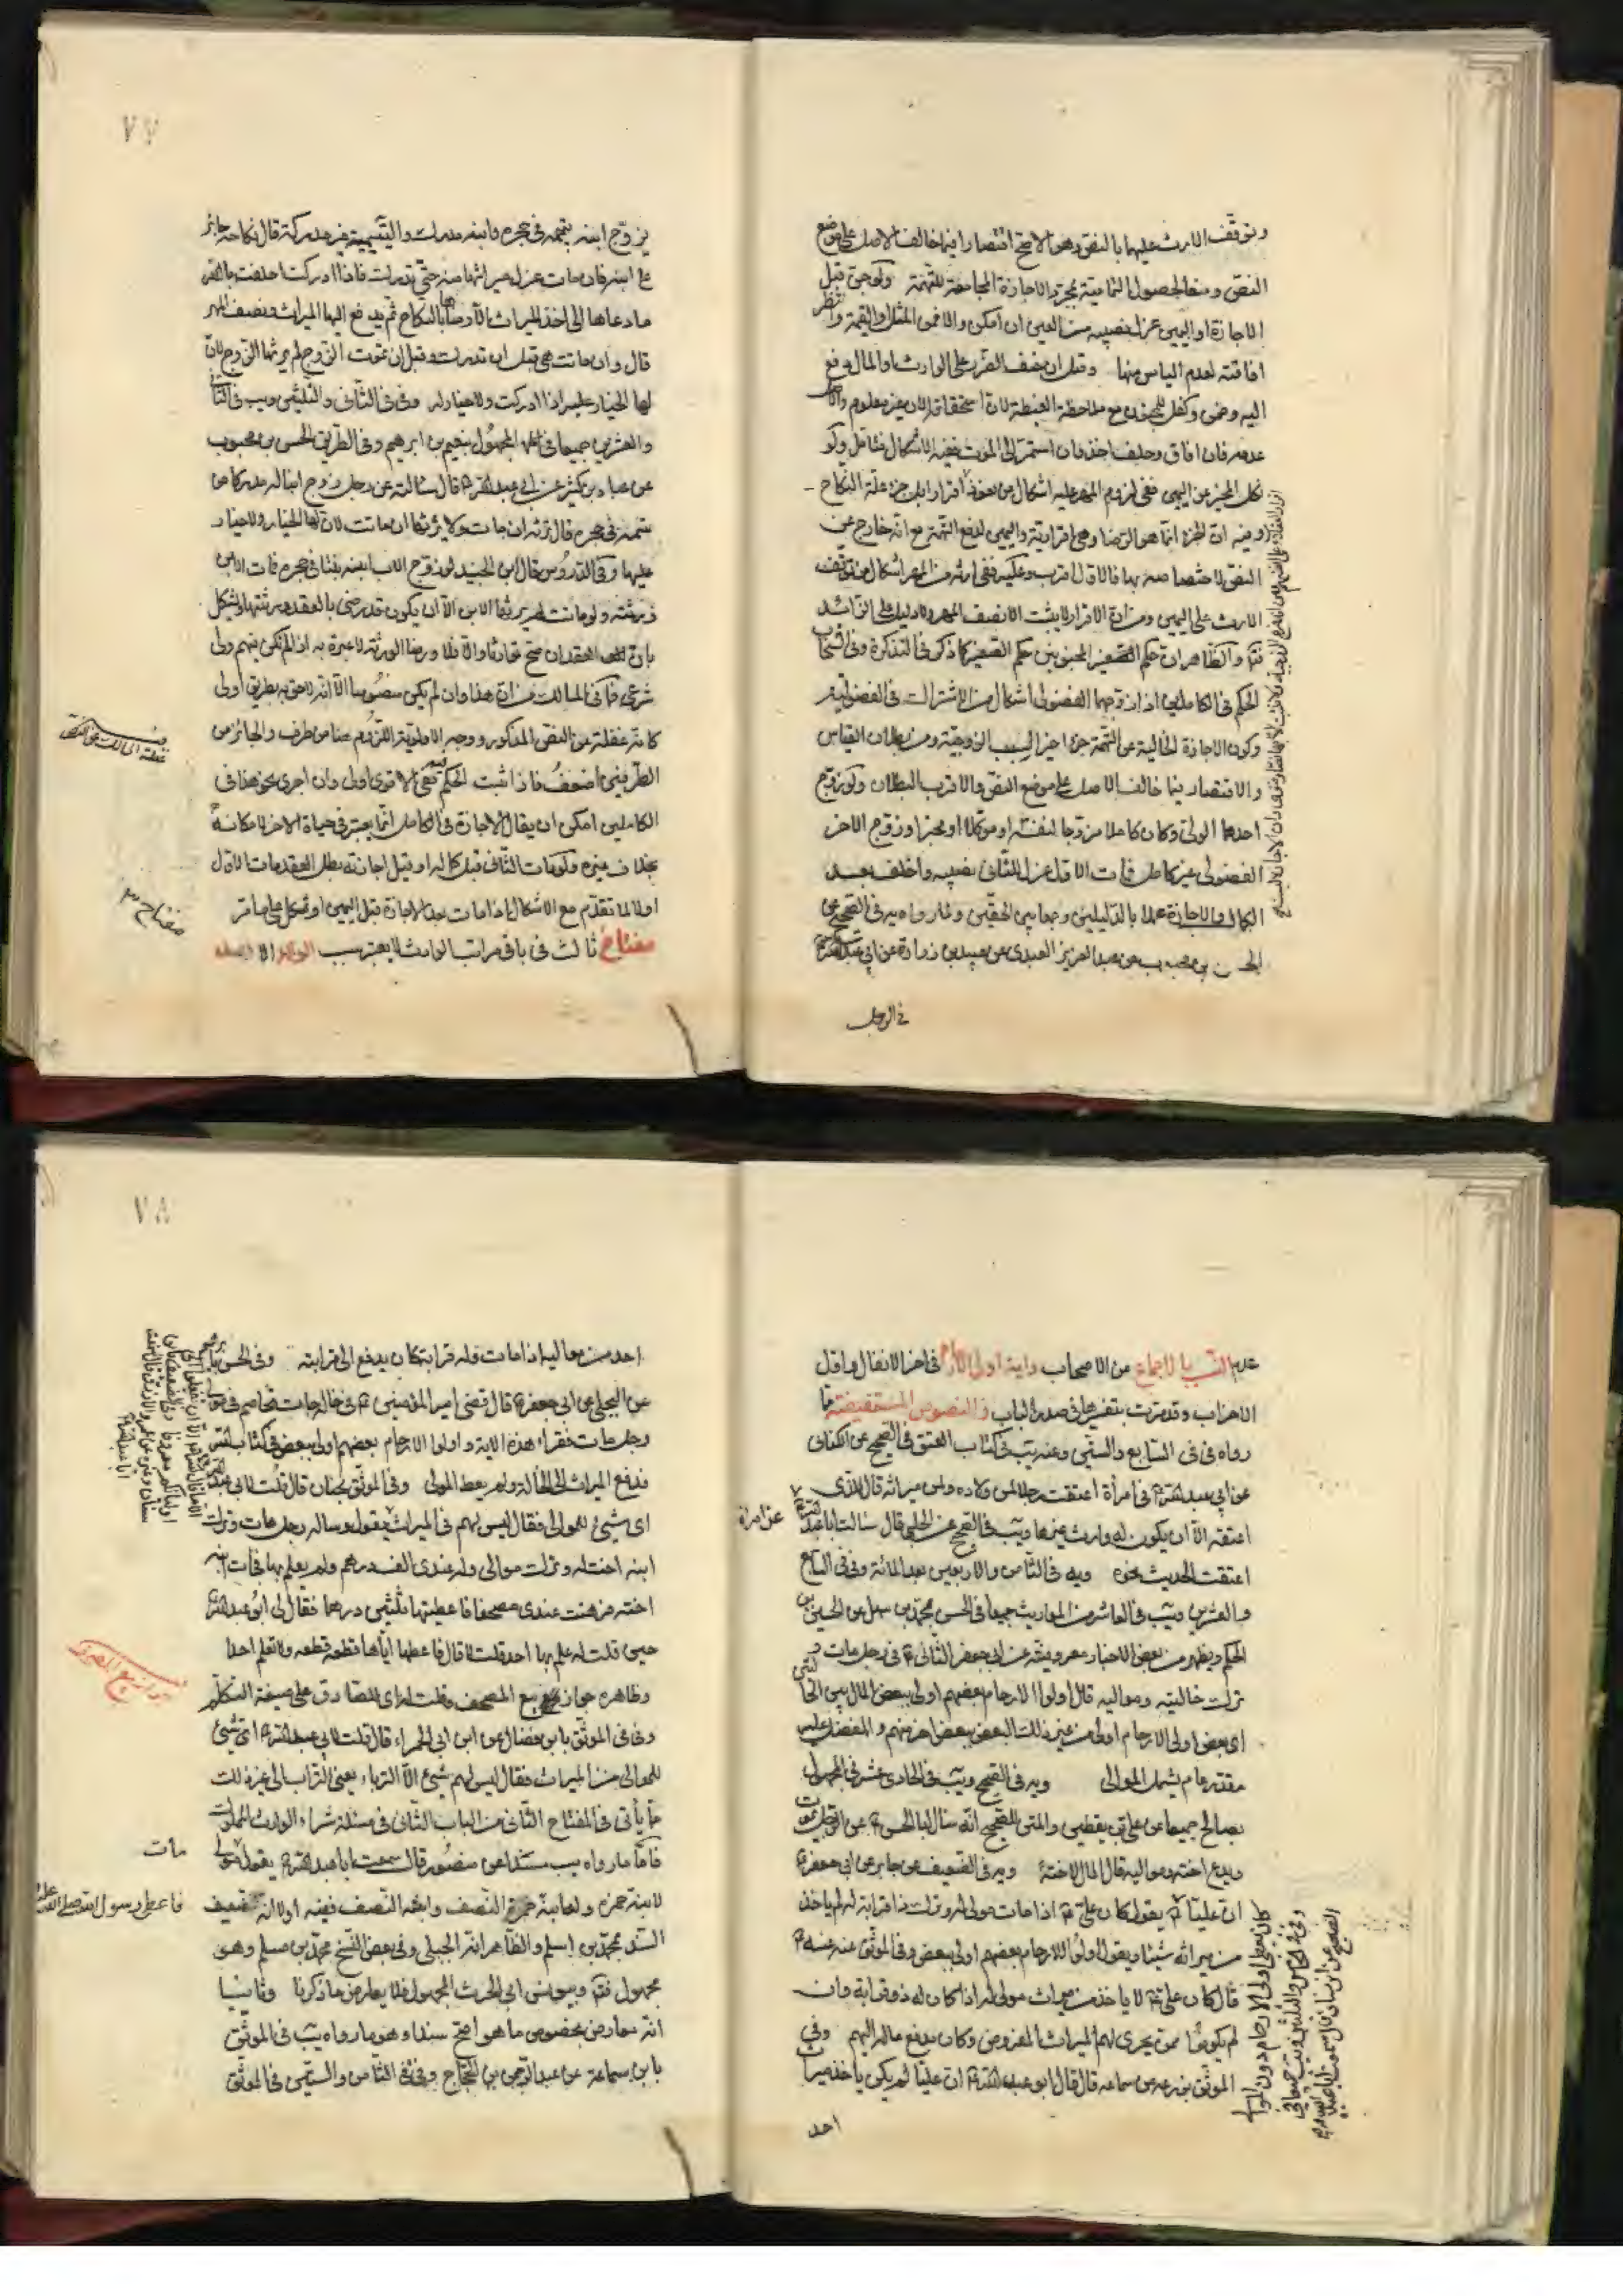 وتوقف الارث عليها بالنص وهو الاصح اقتصارا فيما خالف الاصل على موضع
النص ومنعا لحصول الثمانية بمجرد الاجازة المجامعة للتهمة ولو جن قبل
الاجازة او اليمين عزل نصيبه من العين ان امكن والا فمن المثل او القيمة وانتظر
افاقته لعدم الياس منها وقيل ان خيف الضرر على الوارث او المال دفع
اليه وضمن وكفل للمجنون مع ملاحظة الغبطة لان استحقاقه الان غير معلوم والاصل
عدمه فان افاق وحلف اخذ وان استمر الى الموت ففيه الاشكال فتامل ولو
نكل المجيز عن اليمين ففي لزوم المهر عليه اشكال من نفوذ اقراره بان جزء علة النكاح
وفيه ان الجزء انما هو الرضا وهي اقراريته واليمين لدفع التهمة مع انه خارج عن
النص لاختصاصه بها فالاول اقرب وعليه ففي ارثه من المهر اشكال من توقف
الارث على اليمين ومن ان الاقرار لا يثبت الا نصف المهر ولا دليل على الزائد
فتم والظاهر ان حكم الصغير المجنونين حكم الصغير كما ذكر في التذكرة وفي انسحاب
الحكم في الكاملين اذا زوجهما الفضولي اشكال من الاشتراك في الفضولية
وكون الاجازة الخالية عن التهمة جزء اخير السبب الزوجية ومن بطلان القياس
والاقتصار فيما خالف الاصل على موضع النص والاقرب البطلان ولو زوج
احدهما الولي وكان كاملا مزوجا لنفسه او موكلا او مجيزا وزوج الاخر
الفضولي غير كامل فمات الاول عزل للثاني نصيبه واحلف بعد
الكمال والاجازة عملا بالدليلين وجمعا بين الحقين ولما رواه يه في الصحيح عن
الحسن بن محبوب عن عبد العزيز العبدي عن عبيد بن زرارة عن ابي عبد الله ع
في الرجل
٧٧
يزوج ابنه يتيمة في حجره وابنه مدرك واليتيمة غير مدركة قال نكاحه جائز
على ابنه فان مات عزل ميراثها منه حتى تدرك فاذا ادركت احلفت بالله
ما دعاها الى اخذ الميراث الا رضاها بالنكاح ثم يدفع اليها الميراث ونصف المهر
قال وان ماتت هي قبل ان تدرك وقبل ان يموت الزوج لم يرثها الزوج لان
لها الخيار عليه اذا ادركت ولا خيار له وفي في الثاني والثلثين ويب في الثاني
والعشرين جميعا في المجهول بنعيم بن ابرهيم وفي الطريق الحسن بن محبوب
عن عباد بن كثير عن ابي عبد الله ع قال سالته عن رجل زوج ابنا له مدركا من
يتيمة في حجره قال ترثه ان مات ولا يرثها ان ماتت لان لها الخيار ولا خيار
عليها وفي الدروس قال ابن الجنيد لو زوج الاب ابنه بنتا في حجره فمات الابن
ورثته ولو ماتت لم يرثها الابن الا ان يكون قد رضي بالعقد ورثتها ويشكل
بان العقد ان صح توارثا والا فلا ورضا الورثة لا عبرة به اذا لم تكن فيهم ولي
شرعي فما في المسالك من ان هذا وان لم يكن منصوصا الا انه لاحق به بطريق اولى
كانه غفلة عن النص المذكور ووجه الاولوية اللزوم هنا من طرف والجائز من
الطرفين اضعف فاذا ثبت الحكم فيه ففي الاقوى اولى وان اجرى نحو هذا في
الكاملين امكن ان يقال الاجازة في الكامل انما يعتبر في حياة الاخر لامكانه
بخلاف غيره ولو مات الثاني قبل كماله او قبل اجازته بطل العقد مات الاول
اولا لما تقدم مع الاشكال اذا مات بعد الاجازة قبل اليمين او نكل على ما مر
مفتاح ثالث في باقي مراتب الوارث لا يعتبر سبب الولاء الا بعد
مفتاح ٣
عدم النسب بالاجماع من الاصحاب واية اولى الارحام في اخر الانفال واول
الاحزاب وقد مرت بتفسيرها في صدر الباب والنصوص المستفيضة فما
رواه في في السابع والستين وعنه يب في كتاب العتق في الصحيح عن الكناني
عن ابي عبد الله ع في امرأة اعتقت رجلا لمن ولاده ولمن ميراثه قال للذي
اعتقه الا ان يكون له وارث غيرها ويب في الصحيح عن الحلبي قال سالت ابا عبد الله ع
عن امراة
اعتقت الحديث نحوه ويه في الثامن والاربعين بعد المائة وفي في التاسع
والعشرين ويب في العاشر من المواريث جميعا في الحسن محمد بن سهل عن الحسين بن
الحكم ويظهر من بعض الاخبار معروفيته عن ابي جعفر الثاني ع في رجل مات و
ترك خالتيه ومواليه قال اولوا الارحام بعضهم اولى ببعض المال بين الخالتين
اي بعض اولى الارحام اولى من غير ذلك البعض ببعض اخر منهم والمفضل عليه
مقدر عام يشمل الموالي ويه في الصحيح ويب في الحادي عشر في المجهول
بصالح جميعا عن علي بن يقطين والمتن للصحيح انه سال ابا الحسن ع عن الرجل يموت
ويدع اخته ومواليه قال المال لاخته ويه في الضعيف عن جابر عن ابي جعفر ع
ان عليا ع يقول كان علي ع اذا مات مولى له وترك ذا قرابة له لم ياخذ
من ميراثه شيئا ويقول اولوا الارحام بعضهم اولى ببعض وفي الموثق عنه عنه ع
قال كان علي ع لا ياخذ من ميراث مولى له اذا كان له ذو قرابة وان
لم يكونوا ممن يجري لهم الميراث المفروض وكان يدفع ماله اليهم وفي
الموثق بزرعه عن سماعه قال قال ابو عبد الله ع ان عليا لم يكن ياخذ ميراث
احد
٧٨
احد من مواليه اذا مات وله قرابة كان يدفع الى قرابته وفي الحسن
عن البجلي عن ابي جعفر ع قال قضى امير المؤمنين ع في خالة جاءت تخاصم في مولى
رجل مات فقراء هذه الاية واولوا الارحام بعضهم اولى ببعض في كتاب الله
فدفع الميراث الى الخالة ولم يعط المولى وفي الموثق بحنان قال قلت لابي عبد الله ع
اي شيئ للموالي فقال ليس لهم في الميراث يقول وساله رجل مات وترك
ابنه اخت له وترك موالي وله عندي الف درهم ولم يعلم بها فجاءت ابنه
اخته فرهنت عندي مصحفا فاعطيتها ثلثين درهما فقال لي ابو عبد الله ع
حين قلت له علم بها احد قلت لا قال فاعطها اياها قطعه قطعه ولا تعلم احدا
وظاهره جواز بيع المصحف وقلت له اي للصادق على صيغة المتكلم
وفي في الموثق بابن فضال عن ابن ابي الحمراء قال قلت لابي عبد الله ع اي شيئ
للموالي من الميراث فقال ليس لهم شيئ الا الترباء يعني التراب الى غير ذلك
مما يأتي في المفتاح الثاني من الباب الثاني في مسئلة شراء الوارث المملوك
فاما ما رواه يب مسندا عن منصور قال سمعت ابا عبد الله ع يقول مولى
مات
لابنة حمزة وله ابنة حمزة النصف وابنته النصف ففيه اولا انه ضعيف
فاعطى رسول الله صلى الله عليه
السند محمد بن اسلم والظاهر انه الجبلي وفي بعض النسخ محمد بن مسلم وهو
مجهول فتم وبيونس ابي الحرث المجهول فلا يعارض ما ذكرنا وثانيا
انه معارض بخصوص ما هو اصح سندا وهو ما رواه يب في الموثق
بابن سماعة عن عبد الرحمن بن الحجاج وفي في الثامن والستين في الموثق